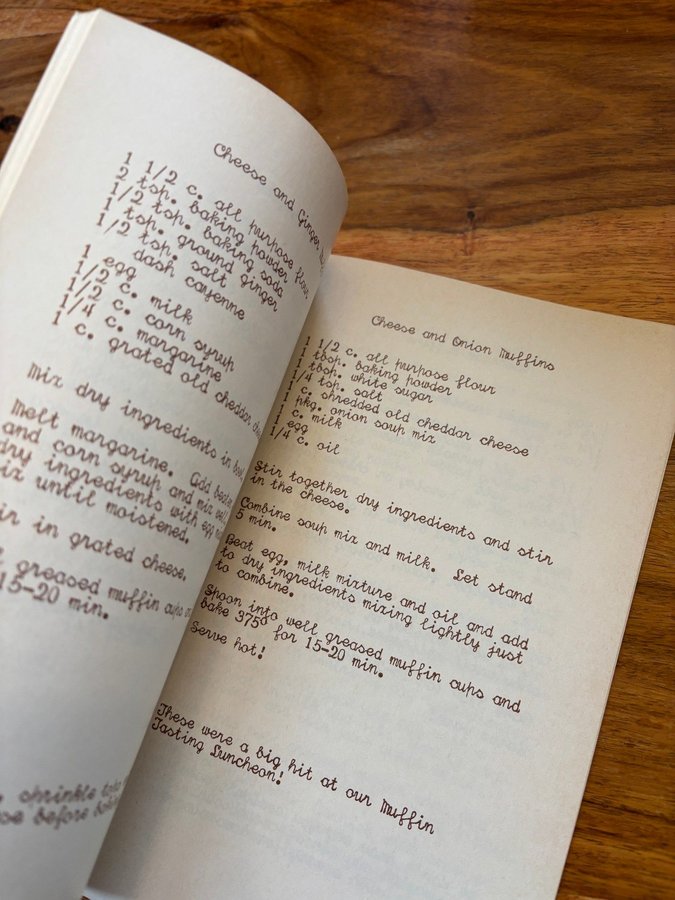 Cheese and Ginger
1 1/2 c. all purpose flour
2 tsp. baking powder
1/2 tsp. baking soda
1 tsp. ground ginger
1/2 tsp. salt
dash cayenne
1 egg
1/2 c. milk
1/2 c. corn syrup
1/4 c. margarine
1 c. grated old cheddar
Mix dry ingredients in
Melt margarine. Add
and corn syrup and mix
dry ingredients with egg
until moistened.
in grated cheese.
greased muffin cups
15-20 min.
sprinkle
before
Cheese and Onion Muffins
1 1/2 c. all purpose flour
1 tbsp. baking powder
1 tbsp. white sugar
1/4 tsp. salt
1 c. shredded old cheddar cheese
1 pkg. onion soup mix
1 c. milk
1 egg
1/4 c. oil
Stir together dry ingredients and stir
in the cheese.
Combine soup mix and milk. Let stand
5 min.
Beat egg, milk mixture and oil and add
to dry ingredients mixing lightly just
to combine.
Spoon into well greased muffin cups and
bake 375° for 15-20 min.
Serve hot!
These were a big hit at our Muffin
Tasting Luncheon!